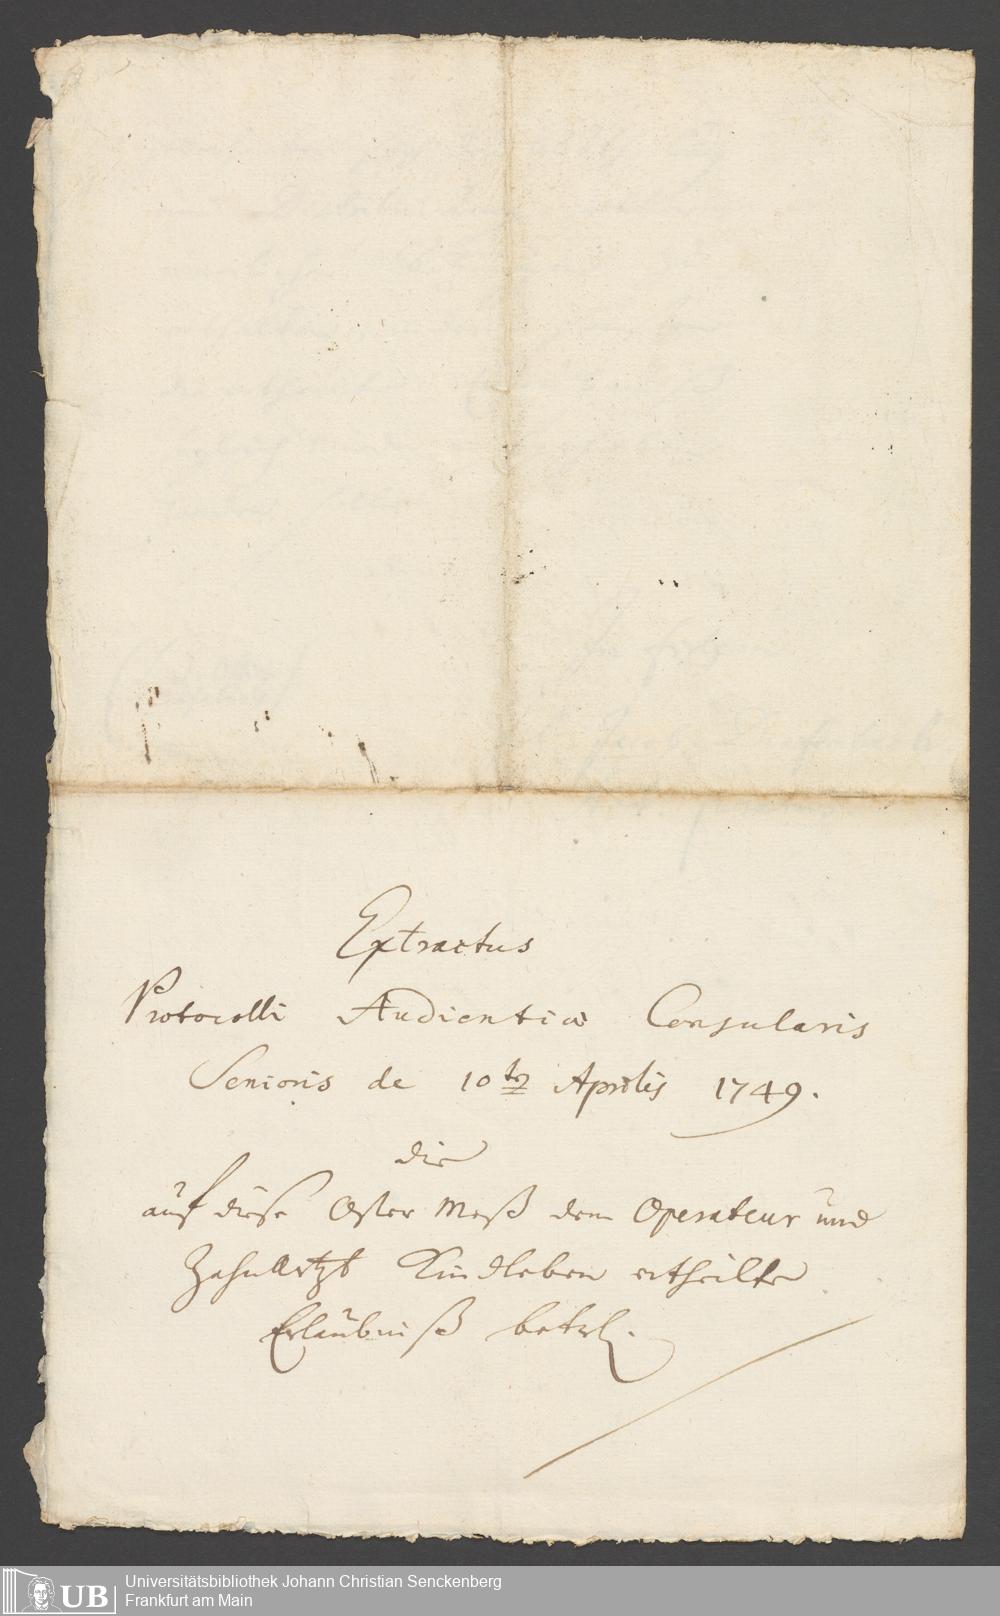 Extractus
Protocolli Audientiæ Consularis
Senioris de 10tz Aprilis 1749.
die
auf diese Oster Meß dem Operateur und
Zahnartzt Kindleben ertheilte
Erlaubniß betrl.
Universitätsbibliothek Johann Christian Senckenberg
Frankfurt am Main
UB